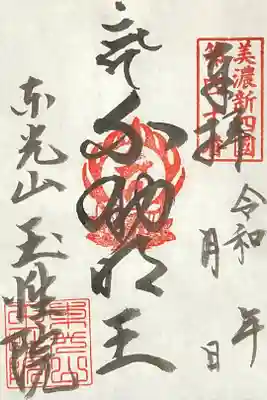 美濃新四国
奉拝
令和　年
月　日
不動明王
東光山　玉性院